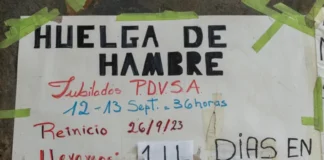 HUELGA DE
HAMBRE
Jubilados PDVSA
12-13 Sept. = 36 horas
Reinicio 26/9/23
DÍAS EN